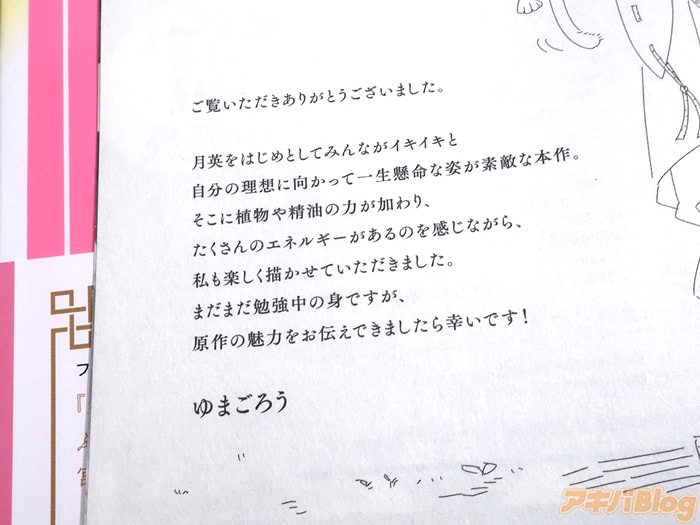 ご覧いただきありがとうございました。
月英をはじめとしてみんながイキイキと
自分の理想に向かって一生懸命な姿が素敵な本作。
そこに植物や精油の力が加わり、
たくさんのエネルギーがあるのを感じながら、
私も楽しく描かせていただきました。
まだまだ勉強中の身ですが、
原作の魅力をお伝えできましたら幸いです!
ゆまごろう
フ
『
アキバBlog